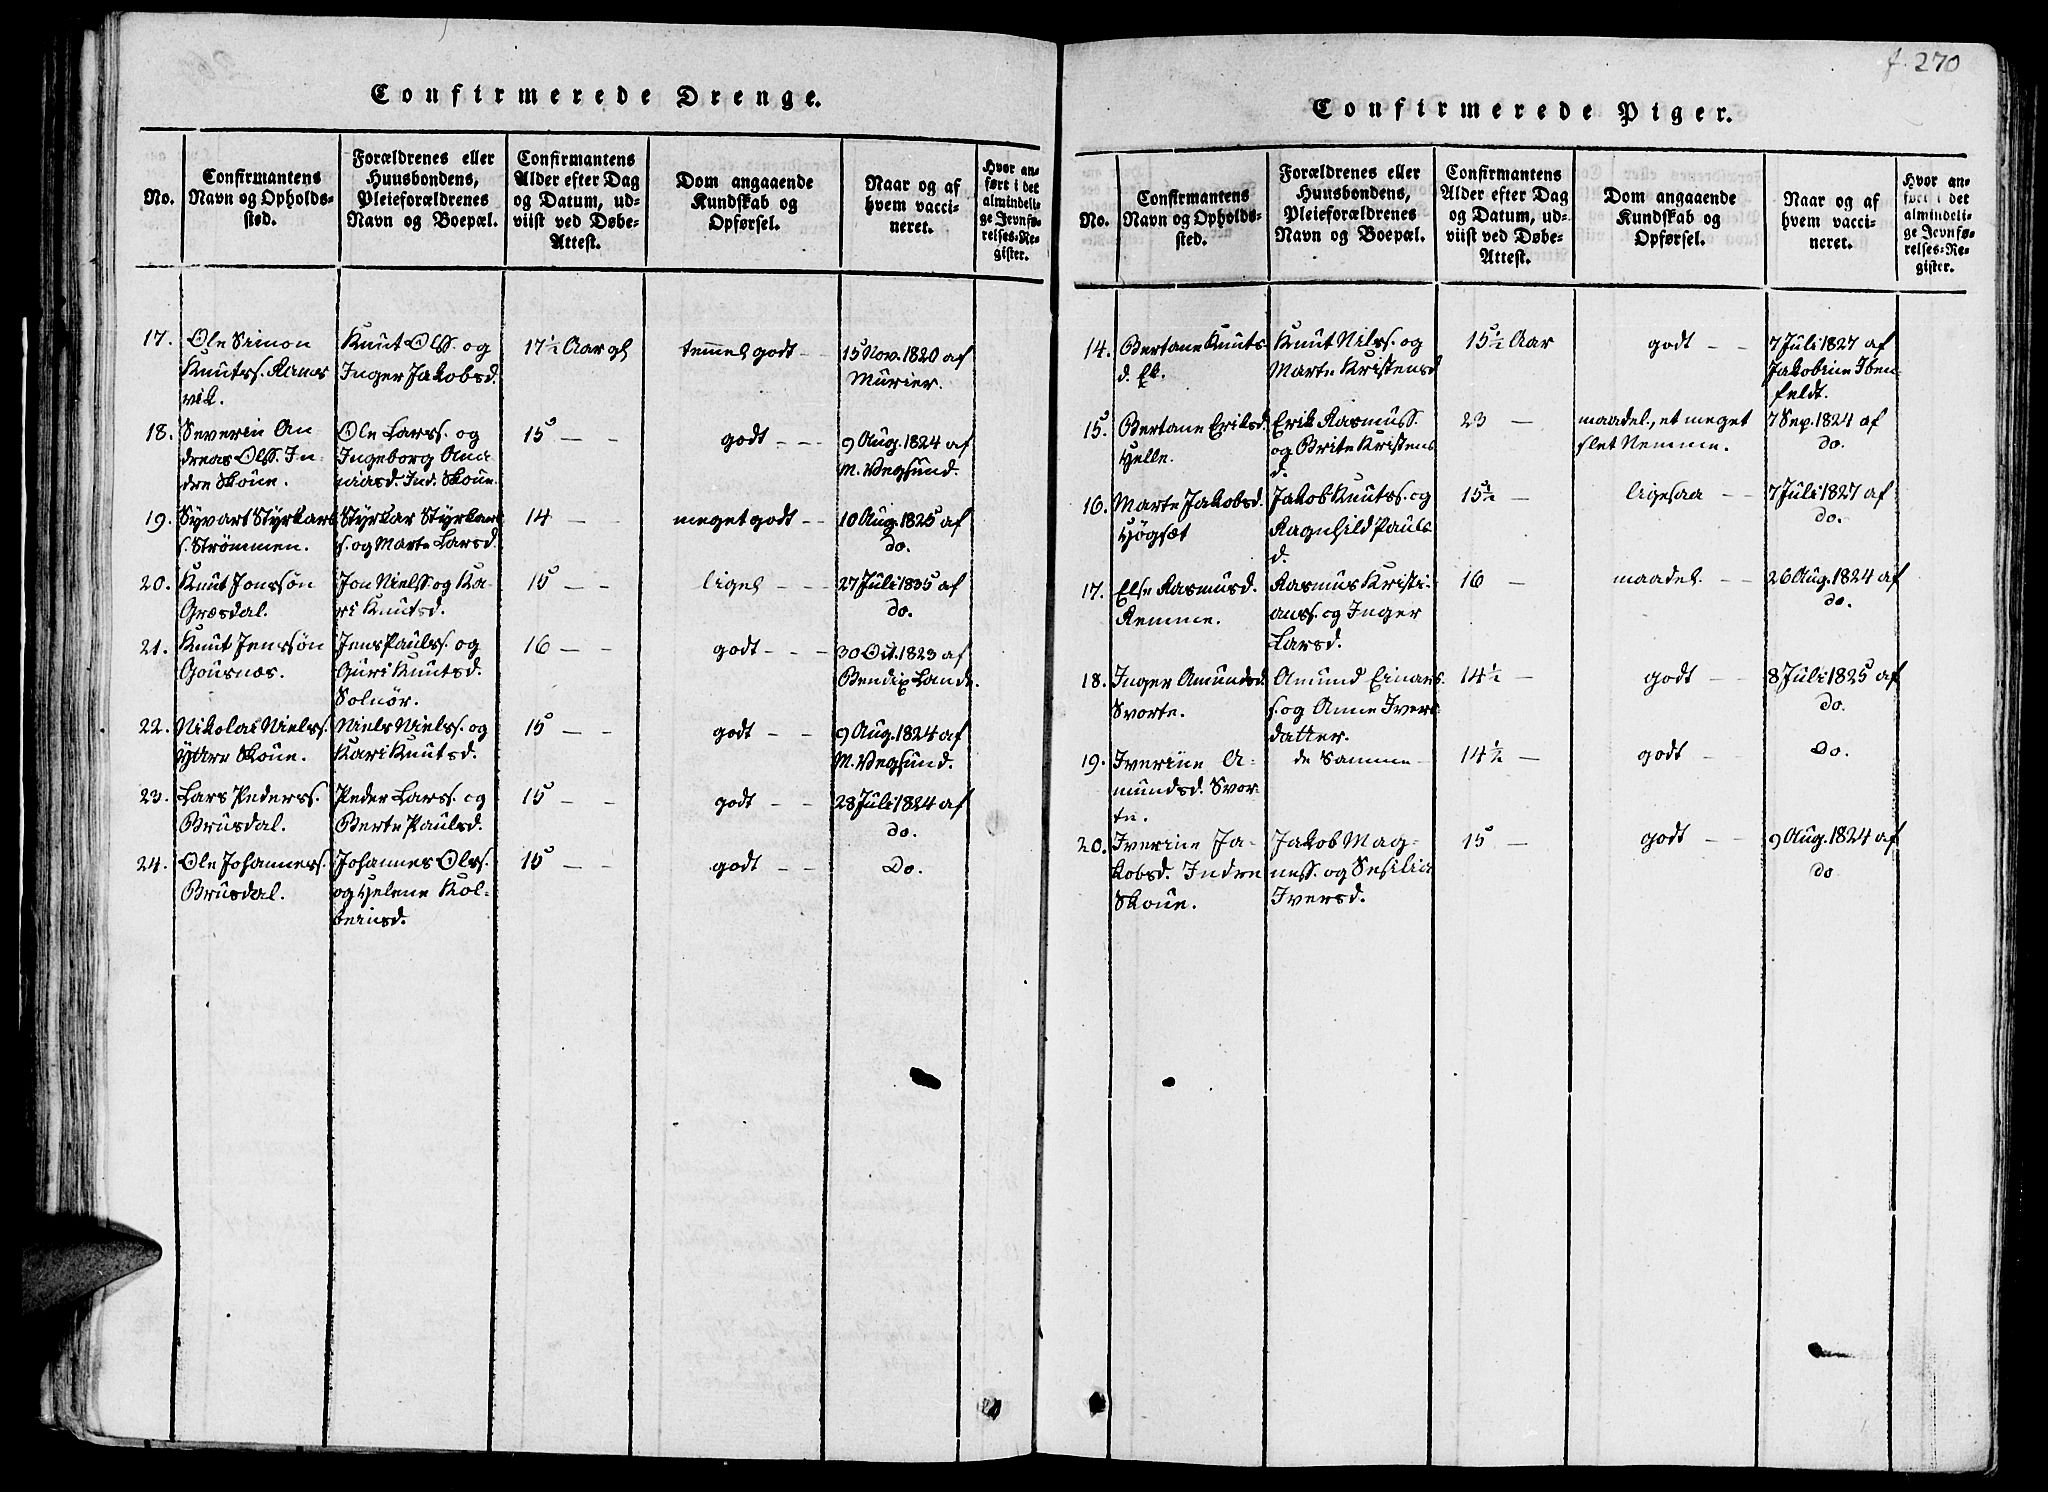 Confirmerede Drenge.
No.
Confirmantens
Navn og Opholds-
sted.
Forældrenes eller
Huusbondens,
Pleieforældrenes
Navn og Boepæl.
Confirmantens
Alder efter Dag
og Datum, ud-
viist ved Døbe-
Attest.
Dom angaaende
Kundskab og
Opførsel.
Naar og af
hvem vacci-
neret.
Hvor an-
ført i det
almindeli-
ge Jevnfø-
relses-Re-
gister.
17. Ole Simon
Knuts. Rams
vik.
Knut Olss. og
Inger Jakobsd.
17½ Aar gl
temmel godt - -
15 Nov. 1820 af
Mürier.
18. Severin An
dreas Olss. In-
dre Skoue.
Ole Larss. og
Ingeborg Ana
niasd. Ind. Skoue.
15 - -
godt - - -
9 Aug. 1824 af
M. Vegsund.
19. Syvart Styrkars
s. Strømmen.
Styrkar Styrkars
s. og Marte Larsd.
14 - -
meget godt - -
10 Aug. 1825 af
do.
20. Knut Jonssøn
Græsdal.
Jon Nielss. og Ka-
ri Knutsd.
15 - -
ligel - - -
27 Juli 1835 af
do.
21. Knut Jenssøn
Gousnæs.
Jens Pauls. og
Guri Knutsd.
Solnør.
16 - -
godt - - -
30 Oct. 1823 af
Bendix Lande.
22. Nikolai Niels.
Ÿttre Skoue.
Niels Niels. og
Kari Knutsd.
15 - -
godt - -
9 Aug. 1824 af
M. Vegsund.
23. Lars Peders.
Brusdal.
Peder Lars. og
Berte Paulsd.
15 - -
godt - -
28 Juli 1824 af
do.
24. Ole Johannes.
Brusdal.
Johannes Ols.
og Helene Kol-
beinsd.
15 - -
godt - -
Do.
f. 270
Confirmerede Piger.
No.
Confirmantens
Navn og Opholds-
sted.
Forældrenes eller
Huusbondens,
Pleieforældrenes
Navn og Boepæl.
Confirmantens
Alder efter Dag
og Datum, ud-
viist ved Døbe-
Attest.
Dom angaaende
Kundskab og
Opførsel.
Naar og af
hvem vacci-
neret.
Hvor an-
ført i det
almindeli-
ge Jevnfø-
relses-Re-
gister.
14. Bertane Knuts
d. Ek.
Knut Nils. og
Marte Kristensd
15½ Aar
godt - -
7 Juli 1827 af
Jakobine Iben-
feldt.
15. Bertane Eriksd.
Helle.
Erik Rasmuss.
og Brite Kristens
d.
23 -
maadel., et meget
slet Nemme.
7 Sep. 1824 af
do.
16. Marte Jakobsd.
Høgsæt
Jakob Knuts. og
Ragnhild Pauls
d.
15½ -
ligesaa - -
7 Juli 1827 af
do.
17. Else Rasmusd.
Remme.
Rasmus Kristi-
anss. og Inger
Larsd.
16 -
maadel. - -
26 Aug. 1824 af
do.
18. Inger Amundsd.
Svorte.
Amund Einars
s. og Anne Ivers
datter.
14½ -
godt - -
8 Juli 1825 af
do.
19. Iverine A-
mundsd. Svor-
te.
de Samme -
14½ -
godt -
Do.
20. Iverine Ja-
kobsd. Indre
Skoue.
Jakob Mag-
ness. og Sesilia
Iversd.
15 -
godt - -
9 Aug. 1824 af
do